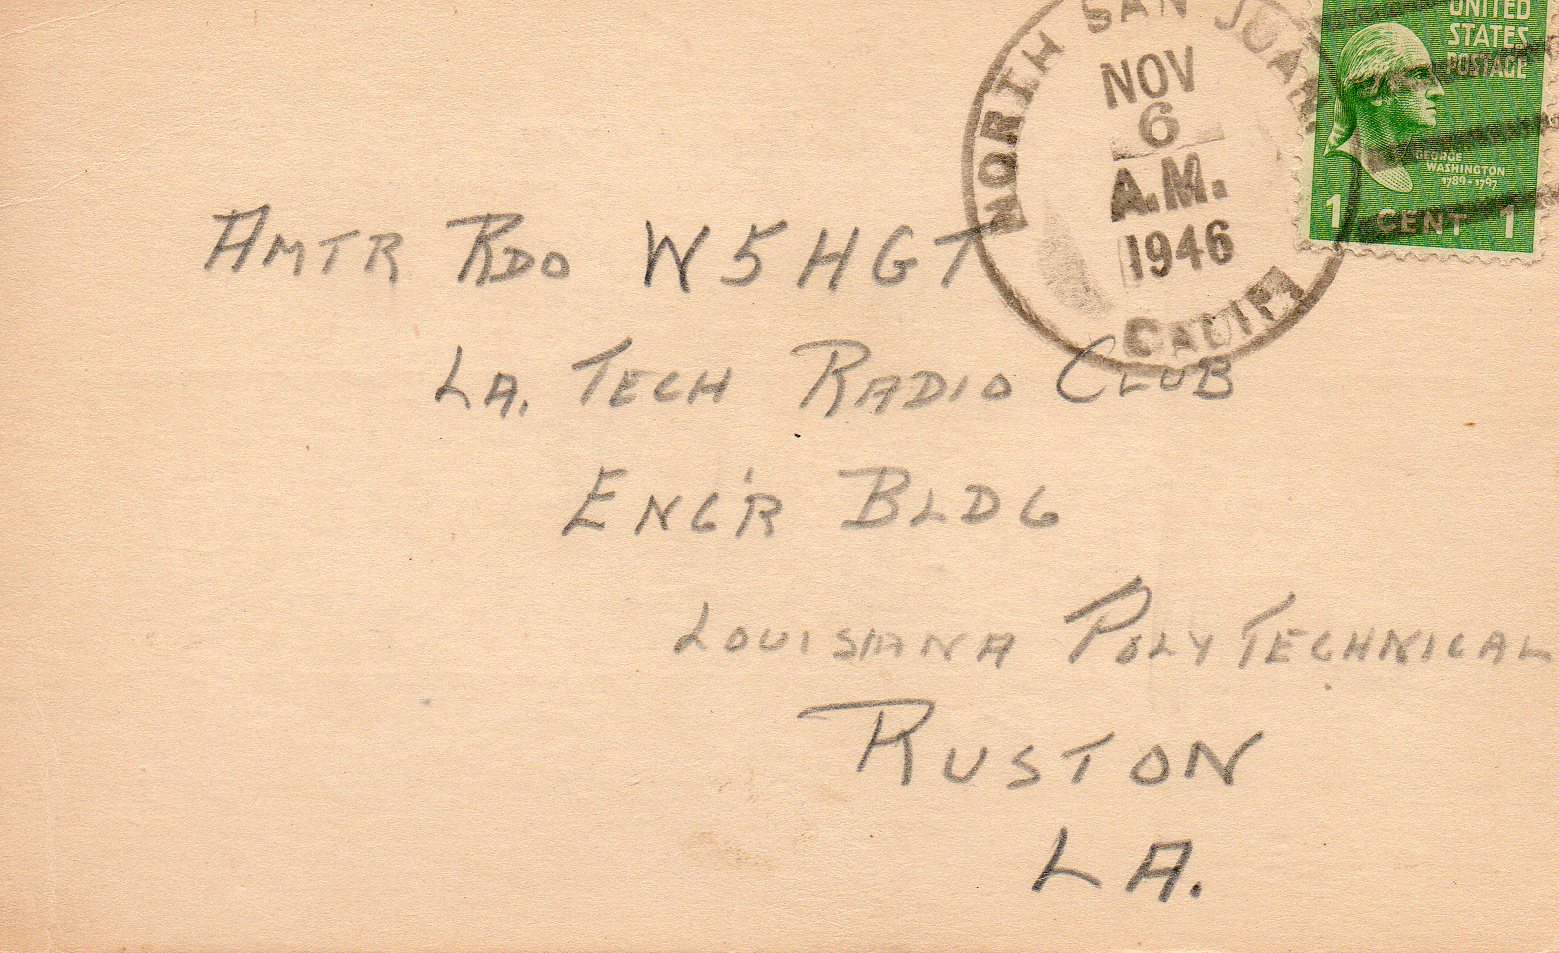 NORTH SAN JUAN
NOV
6
A.M.
1946
CALIF.
UNITED
STATES
POSTAGE
GEORGE
WASHINGTON
1789-1797
1 CENT 1
AMTR RDO W5HGT
LA. TECH RADIO CLUB
ENG'R BLDG
LOUISIANA POLYTECHNICAL
RUSTON
LA.